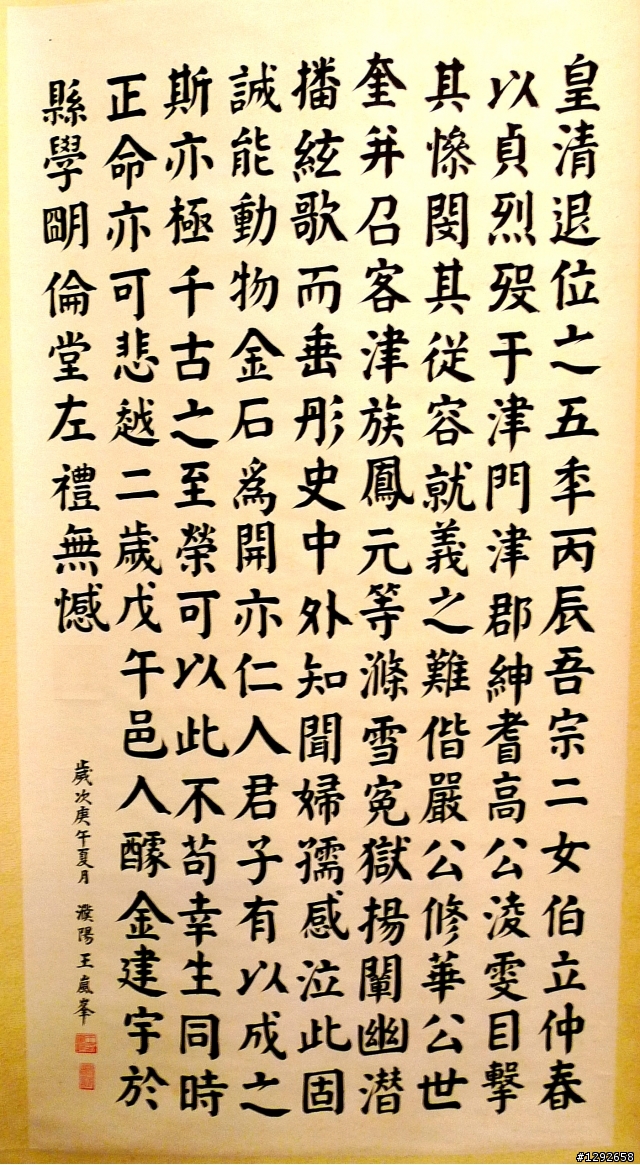 皇清退位之五季丙辰吾宗二女伯立仲春
以貞烈歿于津門津郡紳耆高公淩雯目擊
其慘閔其從容就義之難偕嚴公修華公世
奎并召客津族鳳元等滌雪冤獄揚闡幽潛
播絃歌而垂彤史中外知聞婦孺感泣此固
誠能動物金石爲開亦仁人君子有以成之
斯亦極千古之至榮可以此不苟幸生同時
正命亦可悲越二歲戊午邑人醵金建宇於
縣學朙倫堂左禮無憾
歲次庚午夏月 濮陽王嵐峯
#1292658